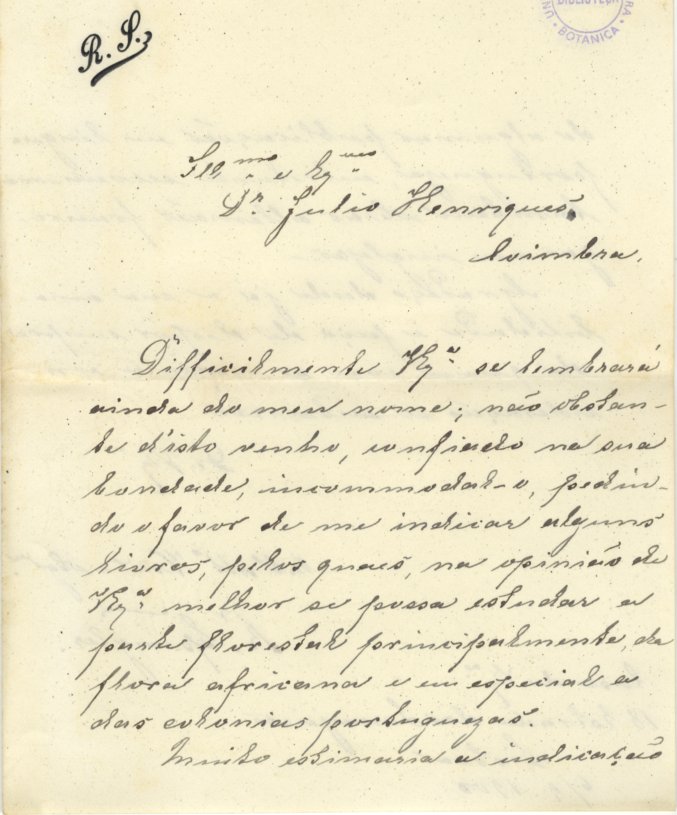 R. S.
BIBLIOTECA
BOTANICA
Ill.mo e Exmo
Dr. Julio Henriques.
Coimbra.
Difficilmente VExa. se lembrará
ainda do meu nome; não obstan-
te d'isto venho, confiado na sua
bondade, incommodal-o, pedin-
do o favor de me indicar alguns
livros, pelos quaes, na opinião de
VExa. melhor se possa estudar a
parte florestal principalmente, da
flora africana e em especial a
das colonias portuguezas.
Muito estimaria a indicação